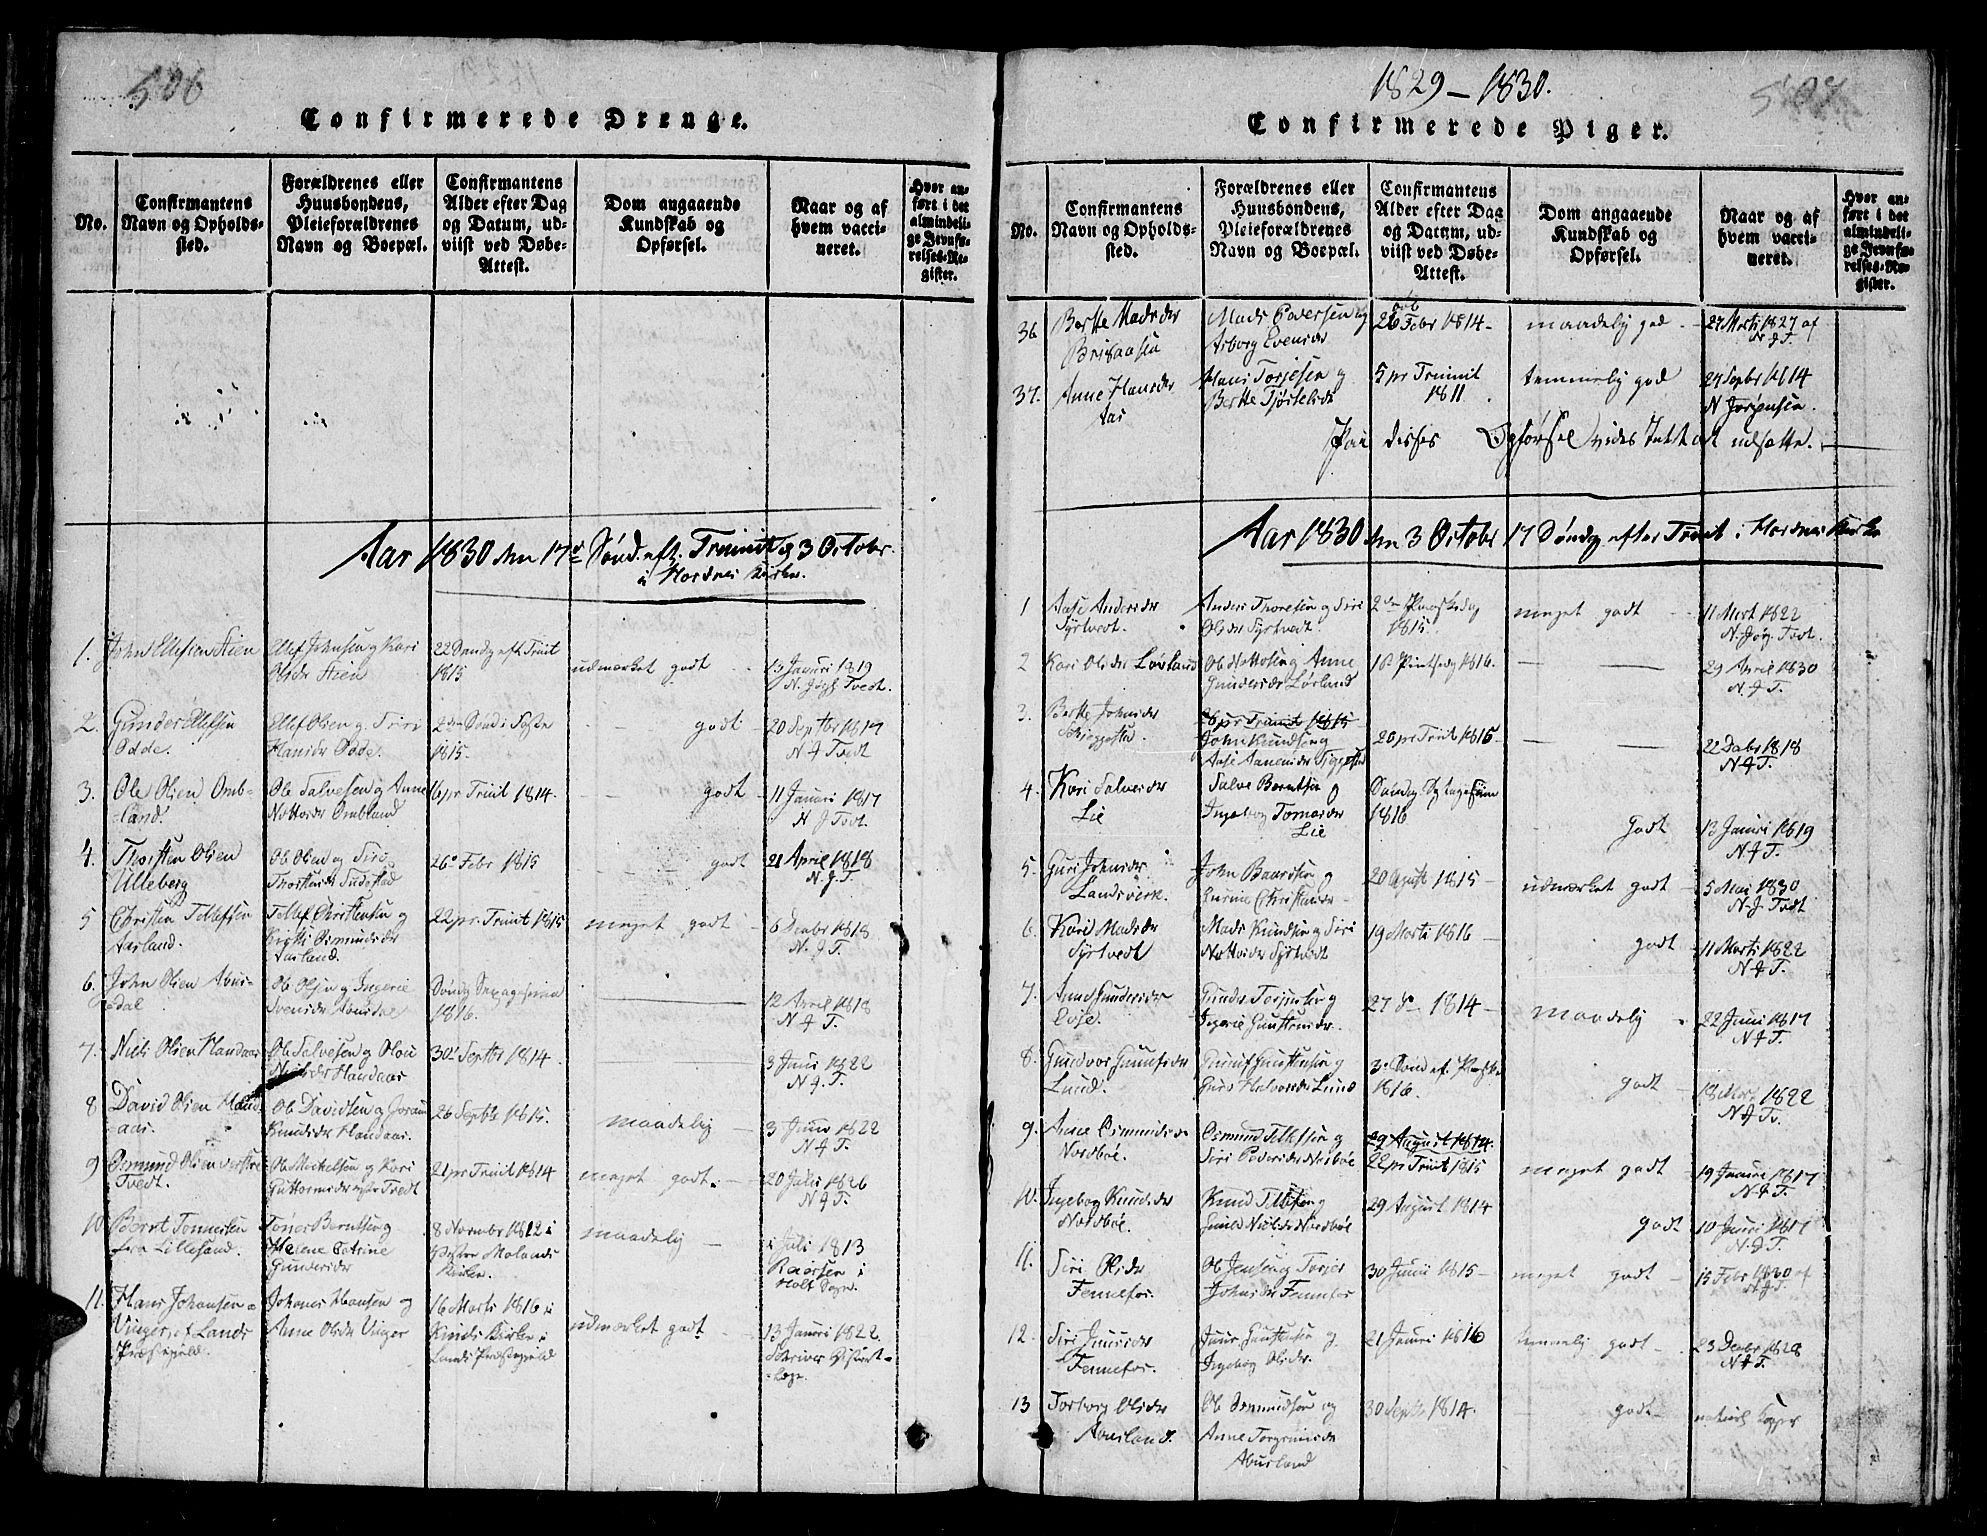 506
Confirmerede Drenge.
No.
Confirmantens
Navn og Opholds-
sted.
Forældrenes eller
Huusbondens,
Pleieforældrenes
Navn og Boepæl.
Confirmantens
Alder efter Dag
og Datum, ud-
viist ved Døbe-
Attest.
Dom angaaende
Kundskab og
Opførsel.
Naar og af
hvem vacci-
neret.
Hvor an-
ført i det
almindeli-
ge Jevnfø-
relses-Re-
gister.
Aar 1830 den 17de Sønd. eft. Trinit. og 3 Octobr.
i Hordnes Kirke.
1. John Ellefsen Stien
Ellef Johnsen og Kari
Olsdr Stien
22 Søndag eft Trinit
1815
udmerket godt
13 Januri 1819
N. Jørg. Tvedt.
2. Gunder Ellefsen
Odde.
Ellef Olsen og Siri
Hansdr Odde.
2den Sønd i Faste
1815.
godt
20 Septbr 1817
N J Tvedt
3. Ole Olsen Omb-
land.
Ole Salvesen og Anne
Nottosdr Ombland
16 pr Trinit 1814.
godt
11 Januri 1817
N J Tvdt.
4. Thorsten Olsen
Ulleberg
Ole Olsen og Siri
26de Febr 1815
godt
21 April 1818
N. J. T.
5 Christen Tellefsen
Aarland.
Tellef Christensen og
Kirsti Osmundsdr
Aarland.
22 pr. Trinit 1815
meget godt
6 Decbr 1818
N. J. T.
6. John Olsen Abus-
dal
Ole Olsen og Ingerie
Svensdr Abusdal
Søndag Sexagesima
1816.
12 April 1818
N J T.
7. Niels Olsen Handaas
Ole Salvesen og Olou
Nielsdr Handaas
30de Septbr 1814
3 Juni 1822
N. J. T.
8 David Olsen Hand-
aas.
Ole Davidsen og Joran
Knudsdr Handaas.
26 Septbr 1815
maadelig
3 Juni 1822
N J T.
9 Osmund Olsen
Tvedt.
Ole Mickelsen og Kari
Guttormsdr Tvedt
21 pr Trinit 1814
meget godt.
20 Juli 1826
N J T.
10 Bernt Tønnesen
fra Lillesand.
Tønes Berntsen og
Helene Catrine
Gundersdr
8 Novembr 1812 i
Vestre Molands
Kirke.
maadelig
i Juli 1813
i
Holt Sogn.
11. Hans Johansen
Vinger, af Lands
Præstegjeld.
Johanes Hansen og
Anne Olsdr Vinger
16 Marti 1816 i
Kinds Kirke i
Lands Præstegjeld
udmerket godt
13 Januri 1822.
1829-1830.
507
Confirmerede Piger.
No.
Confirmantens
Navn og Opholds-
sted.
Forældrenes eller
Huusbondens,
Pleieforældrenes
Navn og Boepæl.
Confirmantens
Alder efter Dag
og Datum, ud-
viist ved Døbe-
Attest.
Dom angaaende
Kundskab og
Opførsel.
Naar og af
hvem vacci-
neret.
Hvor an-
ført i det
almindeli-
ge Jevnfø-
relses-Re-
gister.
36 Berthe Madsdr
Mads Pedersen og
Asborg Evensdr
26 Febr 1814
maadelig god
27 Marti 1827 af
N J T.
37. Anne Hansdr
Hans Torjesen og
5 pr Trinit
1811
temmelig god
27 Septbr 1814
N Jørgensen.
Paa disses Opførsel vides Intet at udsætte.
Aar 1830 den 3 Octobr 17 Søndag efter Trinit. i Hordnes Kirke
1 Aase Andersdr
Syrtvedt.
Anders Thoresen og Siri
Olsdr Syrtvedt.
2den Paaskedag
1815.
meget godt
11 Mart 1822
N. Jørg. Tvdt.
2 Kari Olsdr Løvland
Ole Nottosen og Anne
Gundersdr Løvland
1st Pintsedag 1816.
29 April 1830
N J T.
3. Berthe Johnsdr
26 pr Trinit 1815
John Knudsen og
26 pr Trinit 1815
22 Decbr 1818
N J T.
4. Kari Salvesdr
Lie
Salve Berntsen og
Ingeborg Tomasdr
Lie
1816
Godt
13 Januri 1819
N J T.
5. Guri Johnsdr
Landsverk.
John Baardsen og
Gurine Christensdr
20 August 1815
udmerket godt
5 Mai 1830
N. J. Tvedt
6. Kari Madsdr
Syrtvedt
Mads Knudsen og Siri
Nottosdr Syrtvedt
19 Marti 1816
godt
11 Marti 1822
N J T.
7. Anne Gundersdr
Evje.
Gunder Torjusen og
Ingerie Gunstensdr.
27 1814
maadelig
22 Juni 1817
N J T.
8. Gundvor Gunufsdr
Lund.
Gunuf Gunstensen og
Guro Halvorsdr Lund
3de Sønd ef. Paaske
1816.
godt
18 Mar. 1822
N J T.
9. Anne Osmundsdr
Nordbøe.
Osmund Tellefsen og
Siri Pedersdr Nordbøe
29 August 1814.
22 pr Trinit 1815
meget godt
19 Januri 1817
N. J. T.
10. Ingeborg Knudsdr
Nordbøe.
Knud Tellefsen og
Gunild Nielsdr Nordbøe
29 August 1814
godt
10 Januri 1817
N. J. T.
11. Siri Olsdr
Fennefos.
Ole Jensen og Torjer
Johnsdr Fennefos
30 Junii 1815
meget godt
15 Febr 1830 af
N. J. T.
12. Siri Juursdr
Fennefos.
Juur Gunstensen og
Ingeborg Olsdr.
21 Januri 1816
temmelig godt
23 Decbr 1828
N J T.
13 Torborg Olsdr
Abusland.
Ole Osmundsen og
Anne Torgrimsdr
Abusland
30 Septbr 1814.
godt
naturl. Kopper